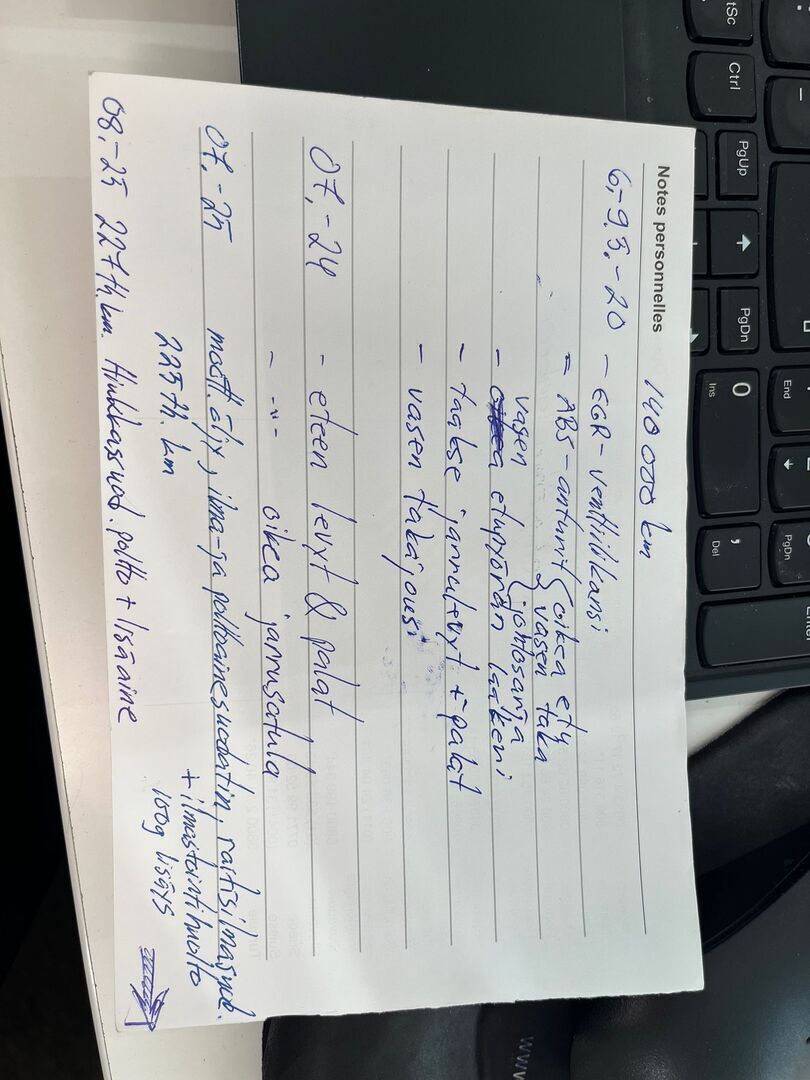 Notes personnelles
140 000 km
6,-9.3,-20 - EGR-venttiilikansi
- ABS-anturit { oikea etu
vasen taka
} johtosarja
vasen
- etupyörän laakeri
- taakse jarrulevyt + palat
- vasen takajousi
07,-24 - eteen levyt & palat
- -"- oikea jarrusatula
07,-25 moott.öljy, ilma- ja polttoainesuodatin, raitisilmasuod.
225 th. km + ilmastointihuolto
100g lisäys
08,-25 227 th. km. Hiukkassuod. poltto + lisäaine
PgUp
PgDn
Ctrl
End
Ins
0
Del
PgDn
www